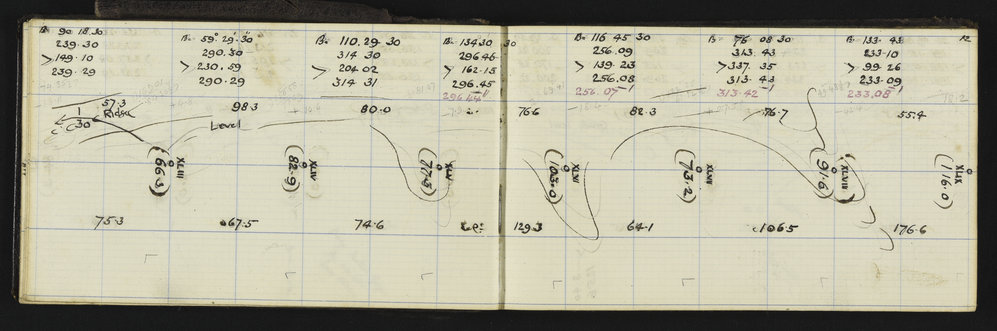 B= 90.18.30
239.30
>149.10
239.29
B= 59° 29' 30"
290.30
>230.59
290.29
B= 110.29.30
314 30
>204 02
314 31
B= 134 30 30
296 46
>162.15
296.45
B= 116 45 30
256.09
>139.23
256.08
256.07
B= 75 08 30
313.43
>337.35
313.43
313.42
B= 133.43
233.10
>99.26
233.09
233.08
12
57.3
Ridge
1
30
98.3
Level
80.0
76.6
82.3
76.7
55.4
XLIII
(66.3)
XLIV
(82.9)
XLV
(77.5)
XLVI
(103.0)
XLVII
(73.2)
XLVIII
(91.6)
XLIX
(116.0)
75.3
67.5
74.6
129.3
64.1
106.5
176.6